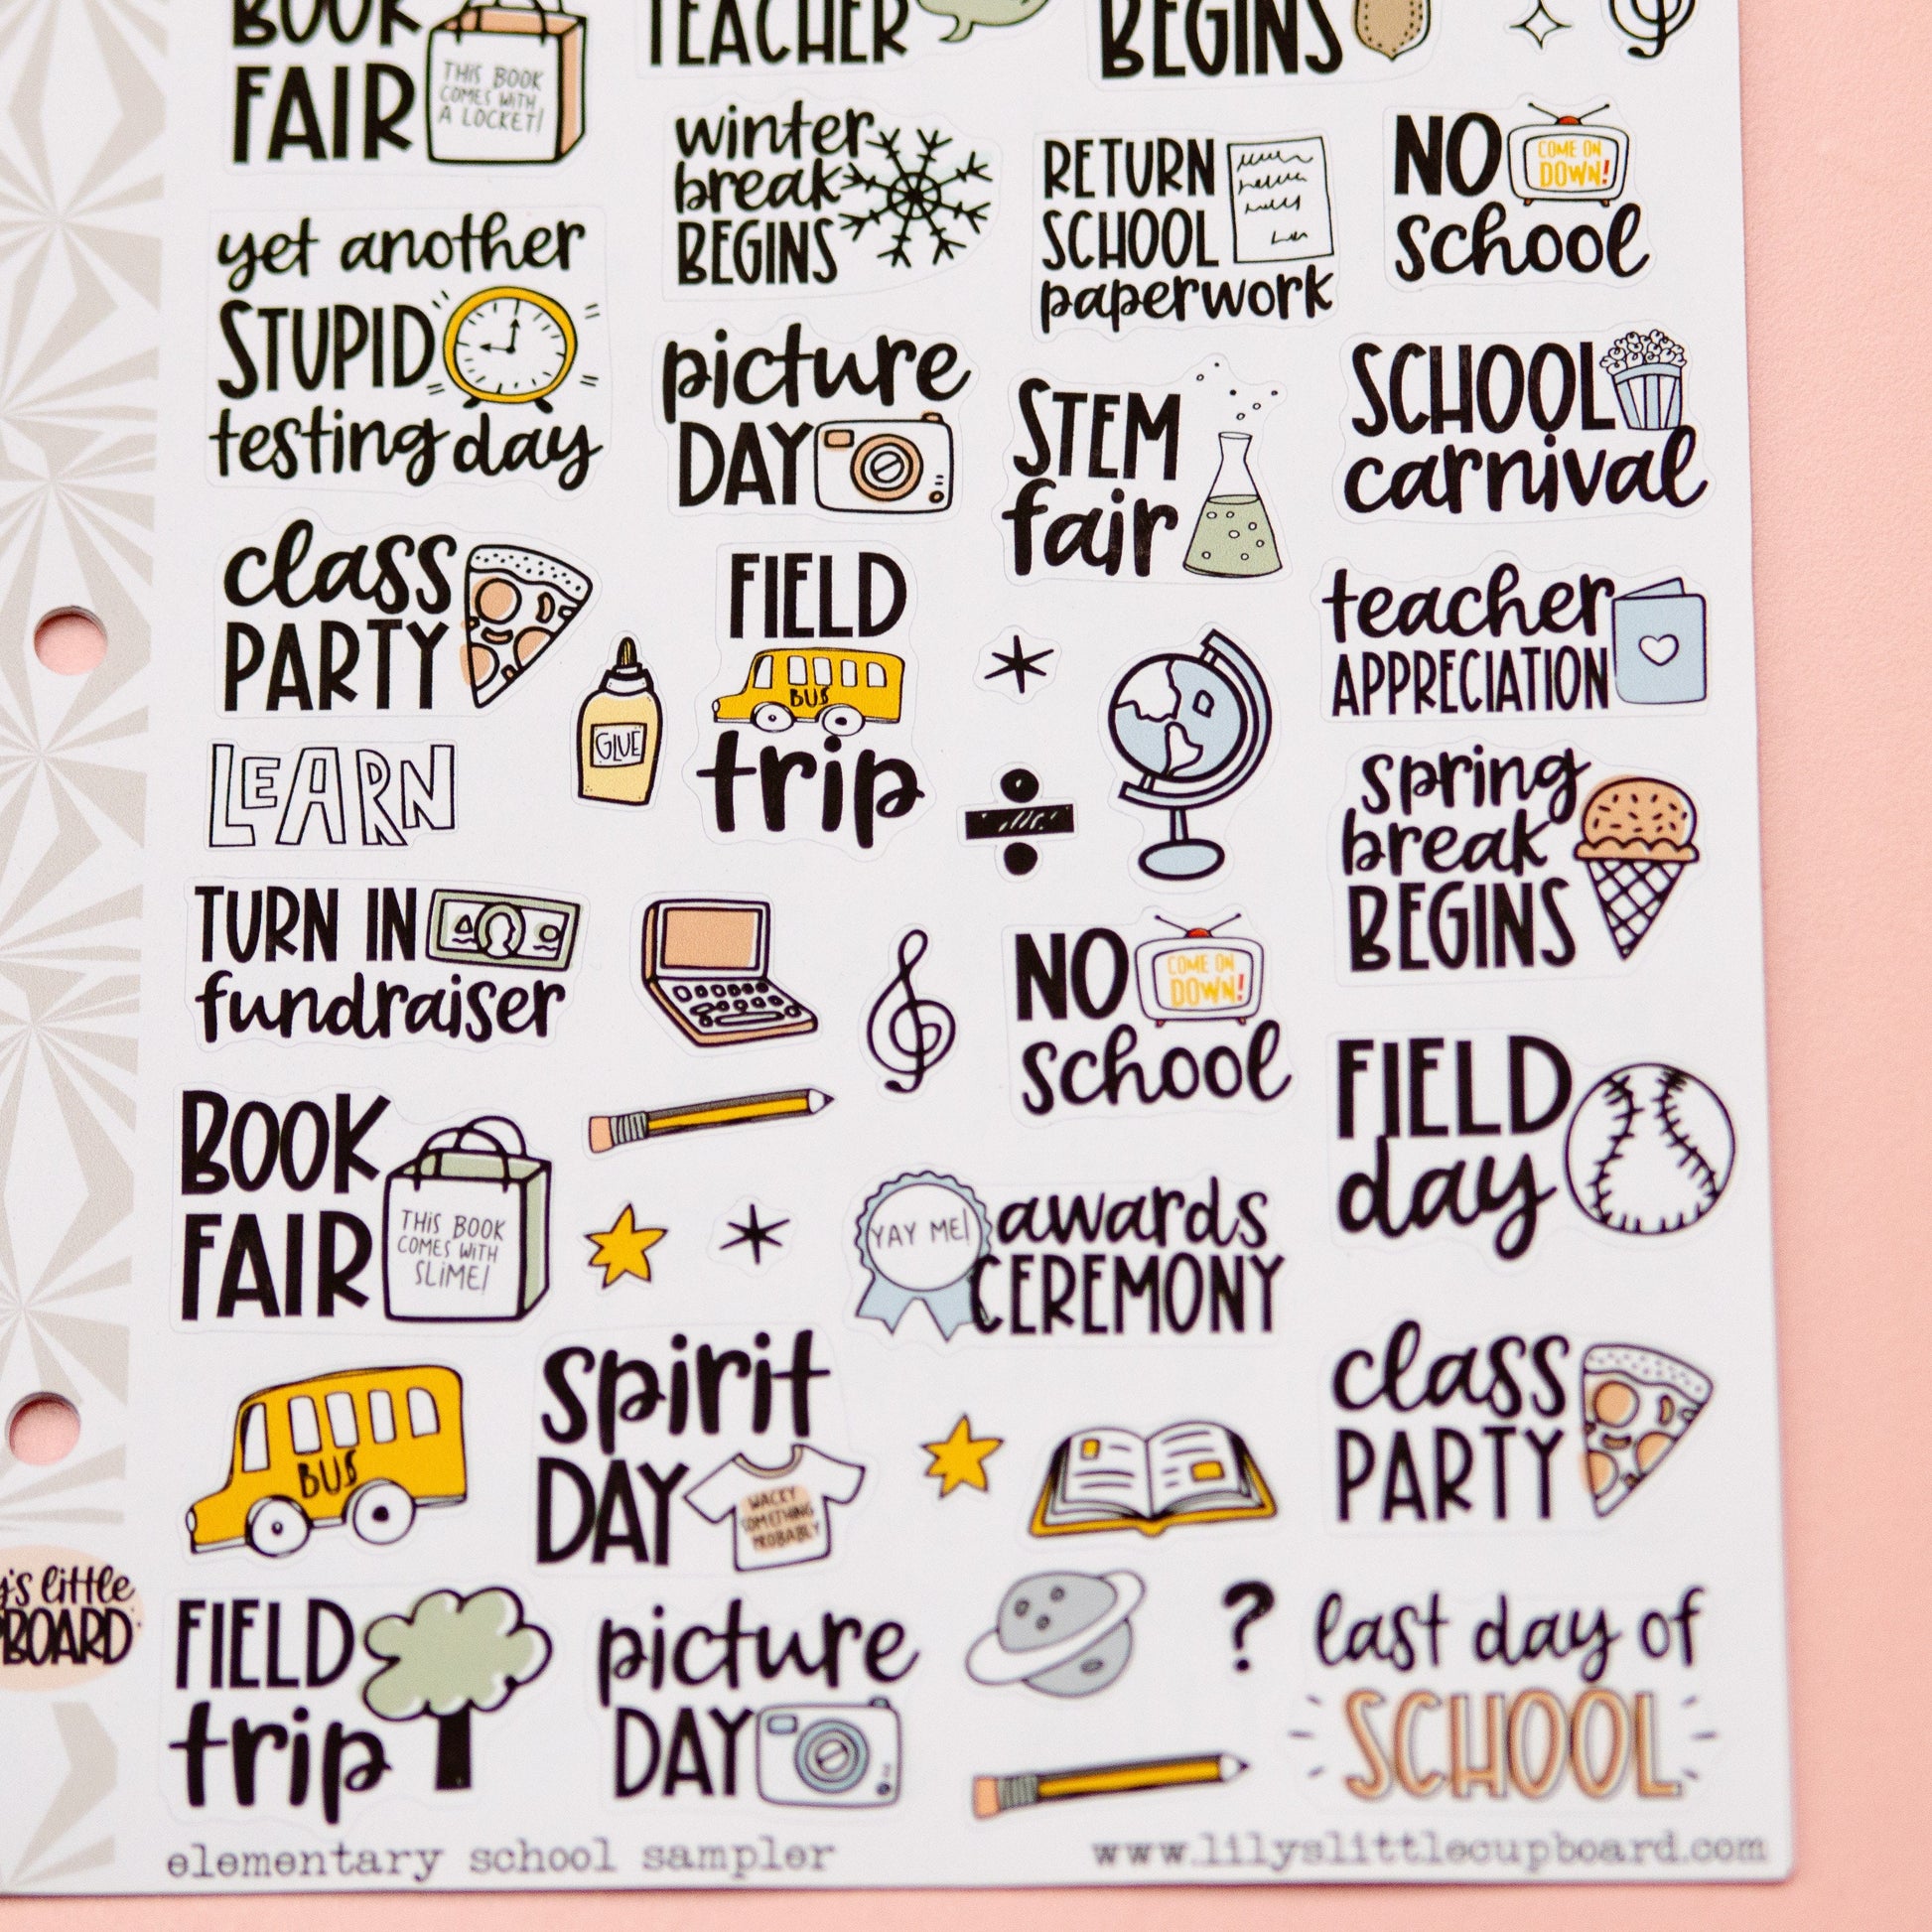 BOOK
FAIR
THIS BOOK
COMES WITH
A LOCKET!
TEACHER
BEGINS
winter
break
BEGINS
RETURN
SCHOOL
paperwork
NO
COME ON
DOWN!
school
yet another
STUPID
testing day
picture
DAY
STEM
fair
SCHOOL
carnival
class
PARTY
GLUE
FIELD
BUS
trip
teacher
APPRECIATION
LEARN
spring
break
BEGINS
TURN IN
fundraiser
NO
COME ON
DOWN!
school
FIELD
day
BOOK
FAIR
THIS BOOK
COMES WITH
SLIME!
YAY ME!
awards
CEREMONY
BUS
spirit
DAY
WACKY
SOMETHING
PROBABLY
class
PARTY
y's little
PBOARD
FIELD
trip
picture
DAY
?
last day of
SCHOOL
elementary school sampler
www.lilyslittlecupboard.com